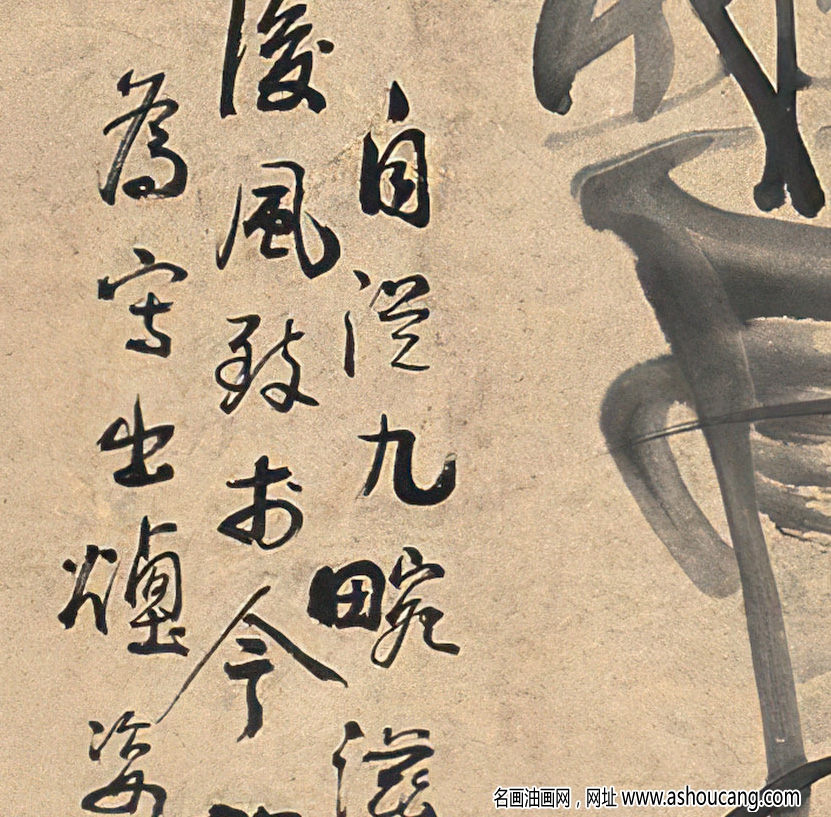 自從九畹滋
風致今
為寫出姿
名画油画网，网址 www.ashoucang.com